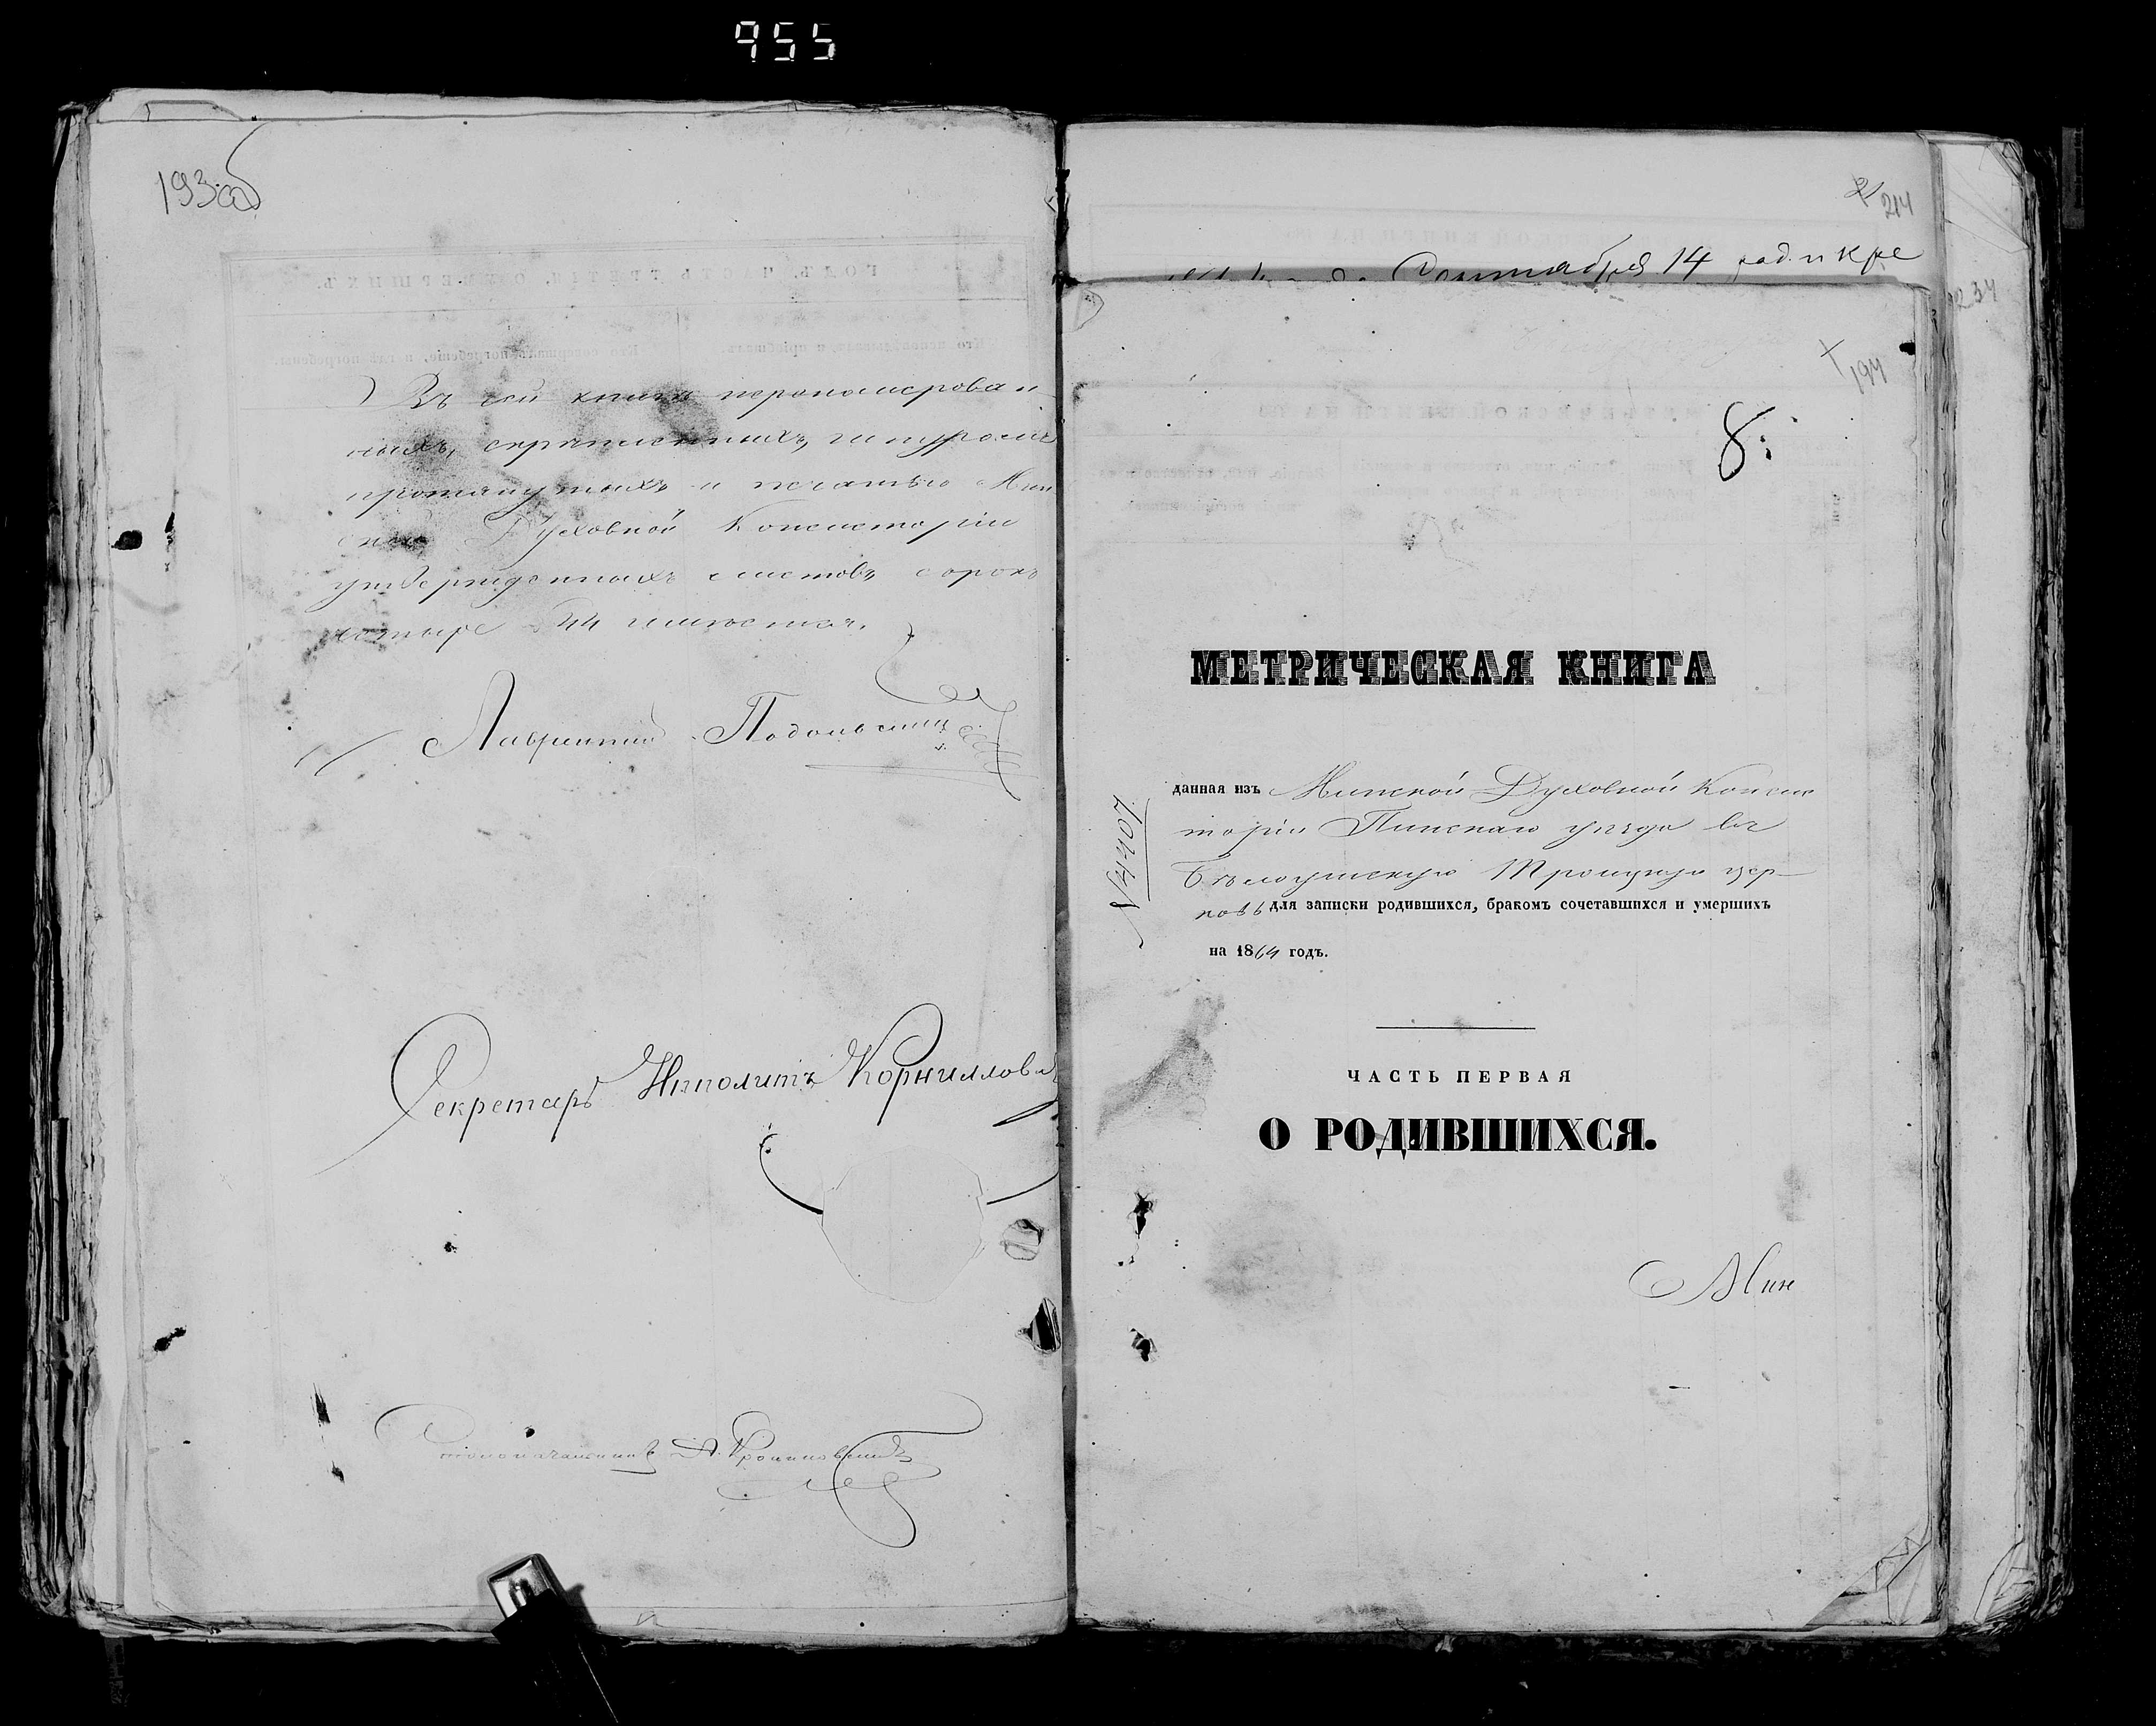 955
193 об
Въ сей книге перономерован
ныхъ, скрепленныхъ, шнуромъ
протянутыхъ и печатью Мин
ской Духовной Консисторіи
утвержденныхъ листовъ сорокъ
четыре 44 имеется.
Лаврентій Подольскій
Секретарь Ипполитъ Корнилловъ
Столоначальникъ А.
214
Сентября 14 род. и кре
234
194
8.
МЕТРИЧЕСКАЯ КНИГА
данная изъ Минской Духовной Консис
торіи Пинскаго уезда въ
Бѣлоушскую Троицкую цер-
ковь для записки родившихся, бракомъ сочетавшихся и умершихъ
на 1864 годъ.
№ 4407
ЧАСТЬ ПЕРВАЯ
О РОДИВШИХСЯ.
Мин